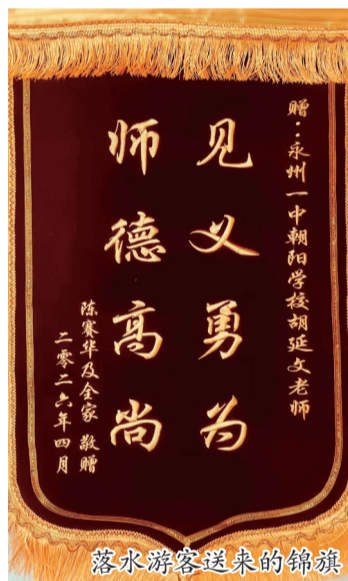 赠：永州一中朝阳学校胡延文老师
见义勇为
师德高尚
陈赛华及全家 敬赠
二零二六年四月
落水游客送来的锦旗